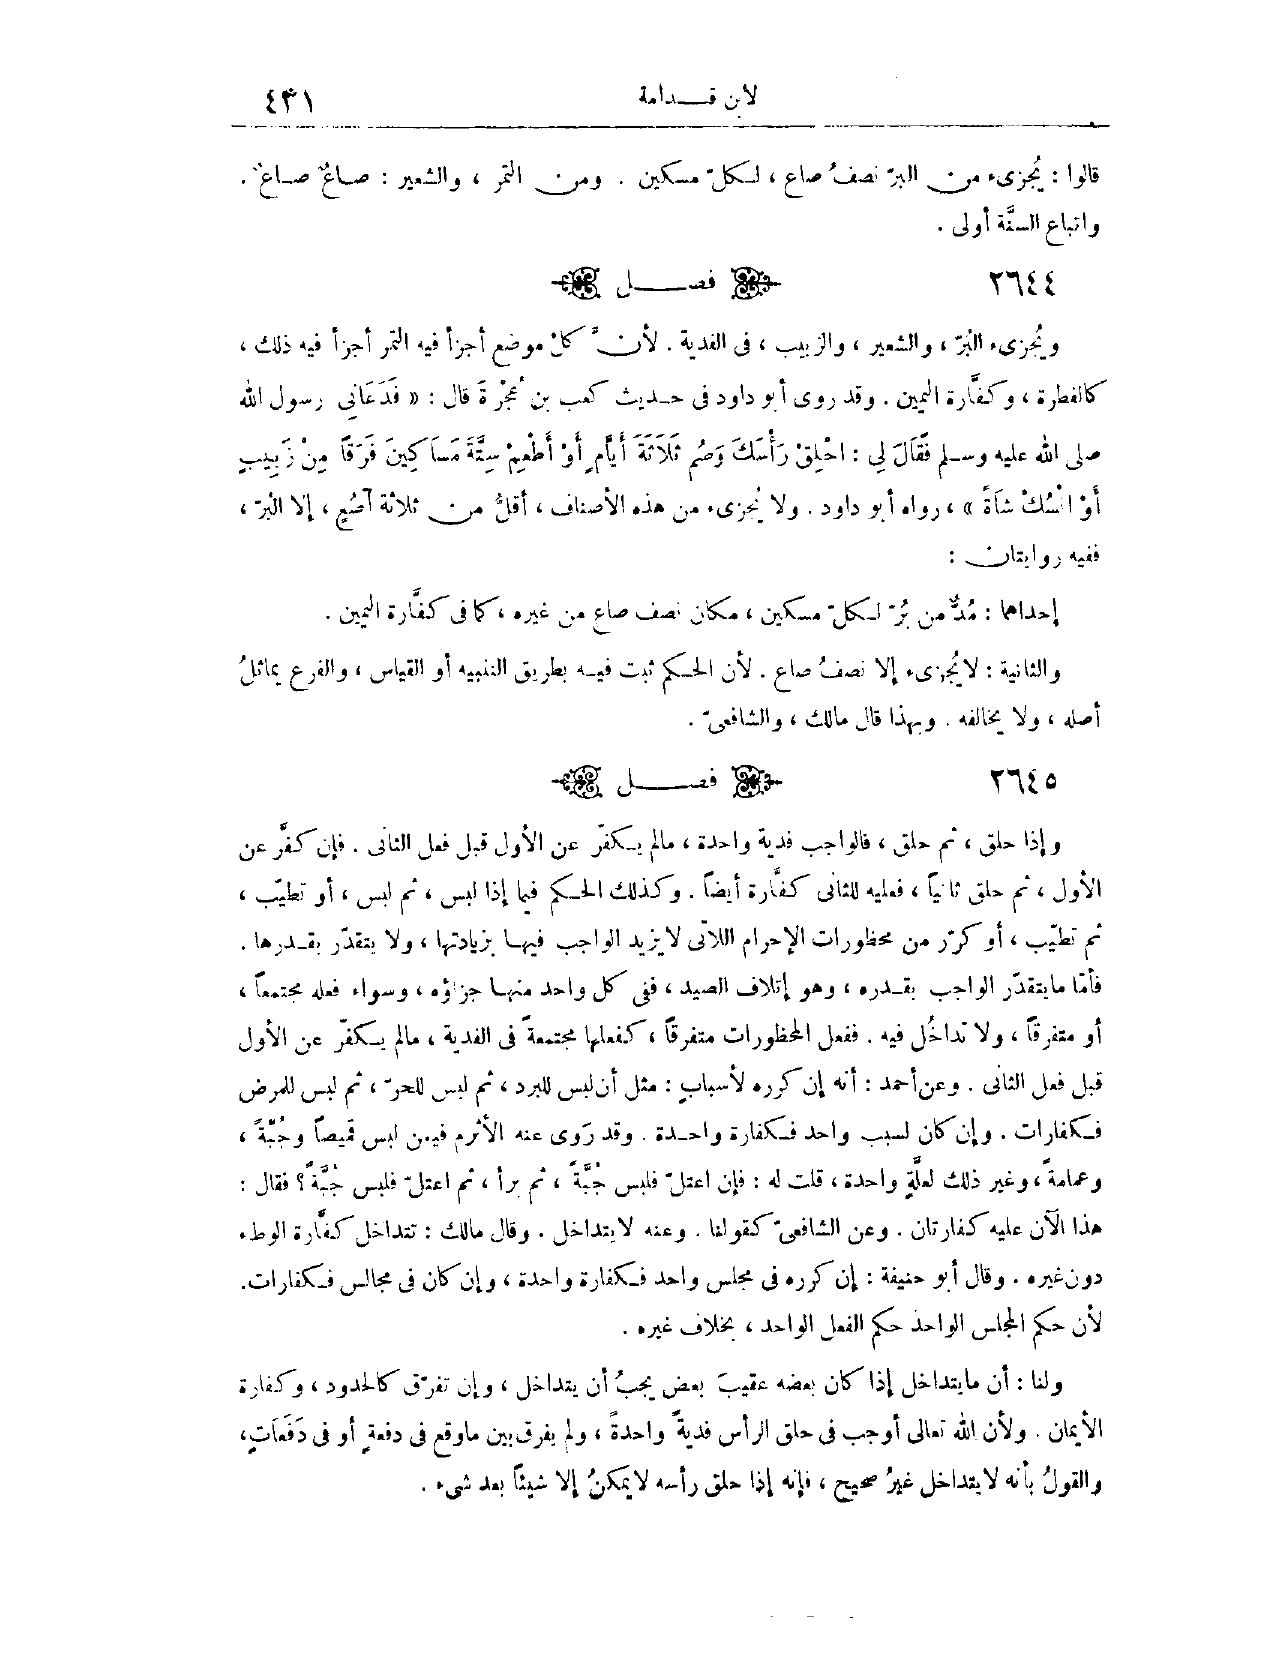 لابن قـــدامة ٤٣١
قالوا : يُجزىء من البرّ نصفُ صاع ، لكلّ مسكين . ومن التمر ، والشعير : صاعٌ صاع .
واتباع السنَّة أولى .
٢٦٤٤ فصـــل
ويُجزىء البُرّ ، والشعير ، والزبيب ، فى الفدية . لأنَّ كلّ موضع أجزأ فيه التمر أجزأ فيه ذلك ،
كالفطرة ، وكفَّارة اليمين . وقد روى أبو داود فى حديث كعب بن عُجْرَةَ قال : « فَدَعَانِى رسول الله
صلى الله عليه وسلم فَقَالَ لِى : احْلِقْ رَأْسَكَ وَصُمْ ثَلَاثَةَ أَيَّامٍ أَوْ أَطْعِمْ سِتَّةَ مَسَاكِينَ فَرَقاً مِنْ زَبِيبٍ
أَوْ انْسُكْ شَاةً » ، رواه أبو داود . ولا يُجزىء من هذه الأصناف ، أقلُّ من ثلاثة آصُعٍ ، إلا البُرّ ،
ففيه روايتان :
إحداهما : مُدٌّ من بُرّ لكلّ مسكين ، مكان نصف صاع من غيره ، كما فى كفَّارة اليمين .
والثانية : لا يُجزىء إلا نصفُ صاع . لأن الحكم ثبت فيه بطريق التنبيه أو القياس ، والفرع يماثلُ
أصله ، ولا يخالفه . وبهذا قال مالك ، والشافعىّ .
٢٦٤٥ فصـــل
وإذا حلق ، ثم حلق ، فالواجب فدية واحدة ، مالم يكفّر عن الأول قبل فعل الثانى . فإن كفَّر عن
الأول ، ثم حلق ثانياً ، فعليه للثانى كفَّارة أيضاً . وكذلك الحكم فيما إذا لبس ، ثم لبس ، أو تطيّب ،
ثم تطيّب ، أو كرّر من محظورات الإحرام اللاتى لا يزيد الواجب فيها بزيادتها ، ولا يتقدّر بقدرها .
فأمّا مايتقدّر الواجب بقدره ، وهو إتلاف الصيد ، ففى كل واحد منها جزاؤه ، وسواء فعله مجتمعاً ،
أو متفرقاً ، ولا تداخُل فيه . ففعل المحظورات متفرقاً ، كفعلها مجتمعةً فى الفدية ، مالم يكفّر عن الأول
قبل فعل الثانى . وعن أحمد : أنه إن كرره لأسبابٍ : مثل أن لبس للبرد ، ثم لبس للحرّ ، ثم لبس للمرض
فكفارات . وإن كان لسبب واحد فكفارة واحدة . وقد رَوى عنه الأثرم فيمن لبس قميصاً وجُبَّةً ،
وعمامةً ، وغير ذلك لعلَّةٍ واحدة ، قلت له : فإن اعتلّ فلبس جُبَّةً ، ثم برأ ، ثم اعتلّ فلبس جُبَّةً ؟ فقال :
هذا الآن عليه كفارتان . وعن الشافعىّ كقولنا . وعنه لا يتداخل . وقال مالك : تتداخل كفَّارة الوطء
دون غيره . وقال أبو حنيفة : إن كرره فى مجلس واحد فكفارة واحدة ، وإن كان فى مجالس فكفارات.
لأن حكم المجلس الواحد حكم الفعل الواحد ، بخلاف غيره .
ولنا : أن مايتداخل إذا كان بعضه عقيبَ بعض يجبُ أن يتداخل ، وإن تفرّق كالحدود ، وكفارة
الأيمان . ولأن الله تعالى أوجب فى حلق الرأس فديةً واحدةً ، ولم يفرق بين ماوقع فى دفعةٍ أو فى دَفَعَاتٍ،
والقولُ بأنه لا يتداخل غيرُ صحيح ، فإنه إذا حلق رأسه لا يمكنُ إلا شيئاً بعد شىء .